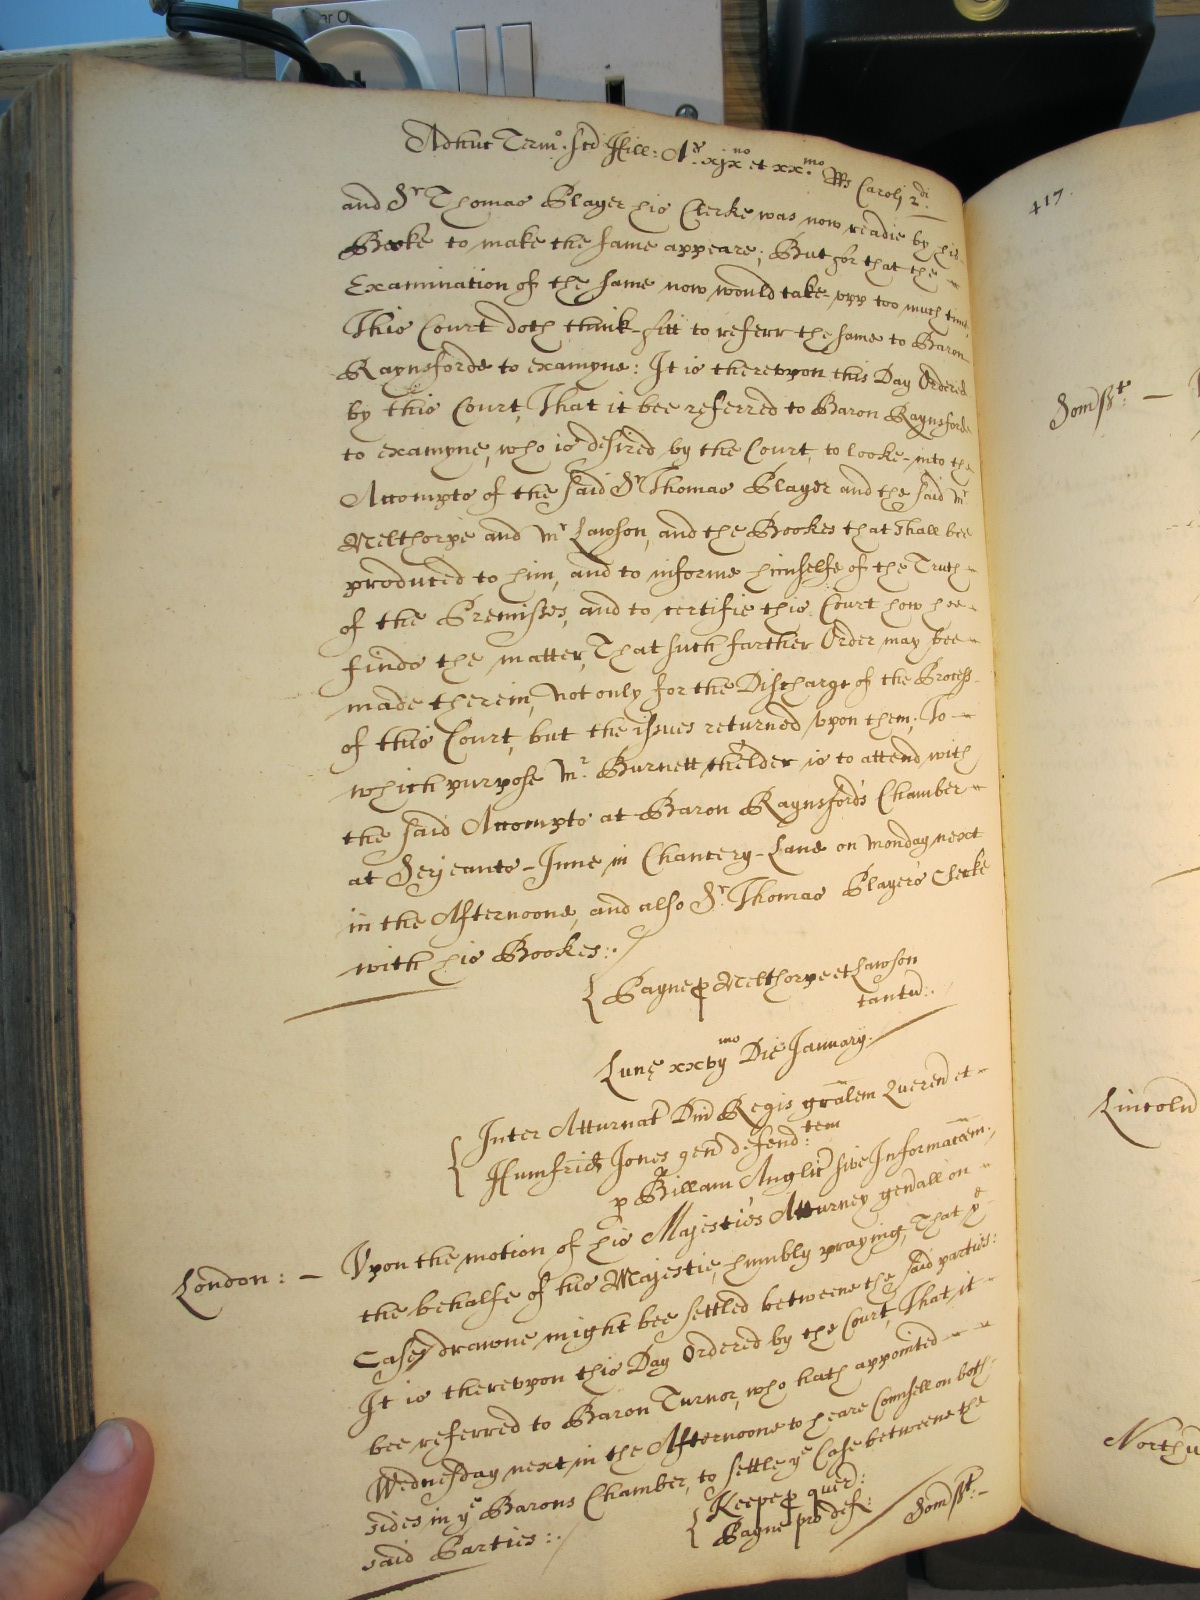 Adhuc Term:o Scd Hill: Ao: xixno et xx:mo Rs Caroli 2di:
and Sr Thomas Player his Clerke was now readie by his
Booke to make the same appeare; But for that the
Examination of the same now would take upp too much time,
This Court doth think fitt to referr the same to Baron
Raynsforde to examyne: It is thereupon this Day Ordered
by this Court, That it bee referred to Baron Raynsforde
to examyne, who is desired by the Court, to looke into the
Accompts of the said Sr Thomas Player and the said Mr
Melthorpe and Mr Lawson, and the Bookes that shall bee
produced to him, and to informe himselfe of the Truth
of the Premisses, and to certifie this Court how hee
finds the matter, That such farther Order may bee
made therein, not only for the Discharge of the Process
of this Court, but the issues returned upon them; To
which purpose Mr. Burnett thelder is to attend with
the said Accompts at Baron Raynsford's Chamber
at Serjeants-Inne in Chancery-Lane on Monday next
in the Afternoone, and also Sr. Thomas Player's Clerke
with his Bookes:.
Payne p Melthorpe et Lawson
tantu:.
Lune xxvijmo Die January.
Inter Atturnat Dni Regis gralem Querend et
Humfrid Jones gen defend:tem
p Billam Anglic sive Informacoem:
London: - Upon the motion of his Majestie's Atturney gen'all on
the behalfe of his Majestie, humbly praying, That ye
Case drawne might bee settled betweene the said parties:
It is thereupon this Day Ordered by the Court, That it
bee referred to Baron Turnor, who hath appointed
Wednesday next in the Afternoone to heare Counsell on both
sides in ye Barons Chamber, to settle ye Case betweene the
said Parties:.
Keepe p quer:
Payne pro def:
Somsst:-
417.
Somsst: -
Lincoln